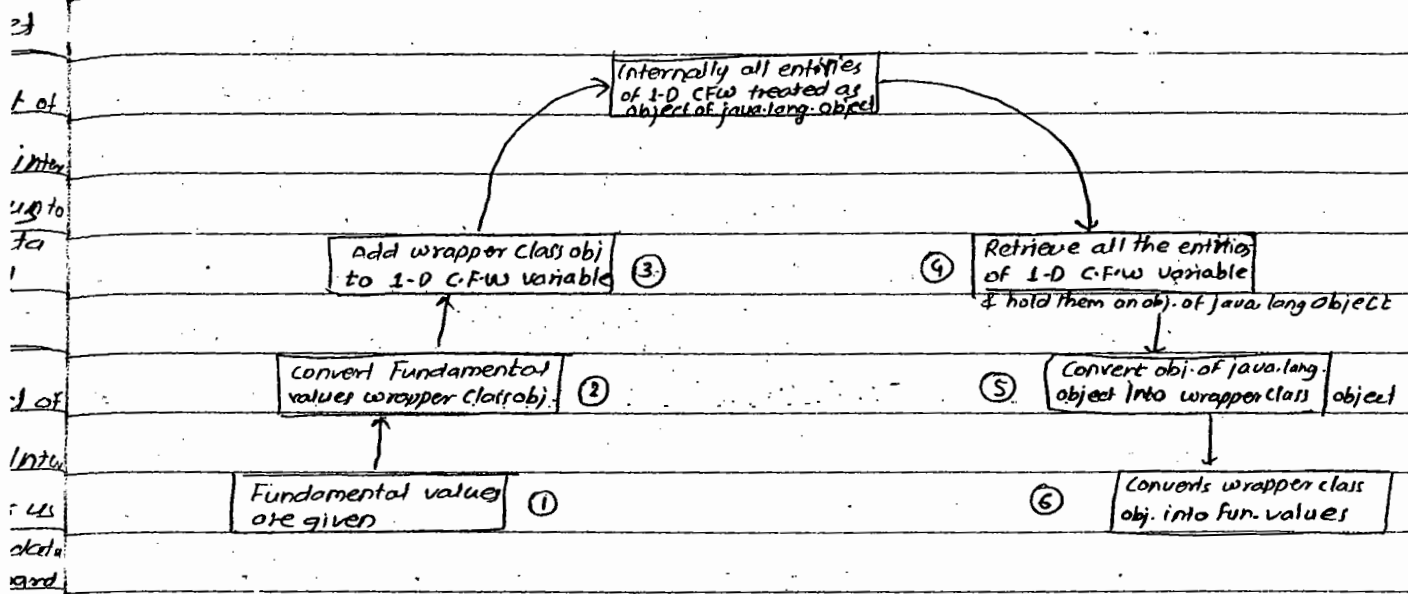 Internally all entities
of 1-D CFW treated as
object of java.lang.object
Add wrapper class obj
to 1-D C.F.W variable
③
④
Retrieve all the entities
of 1-D C.F.W variable
& hold them on obj. of java.lang object
Convert Fundamental
values wrapper class obj.
②
⑤
Convert obj. of java.lang.
object into wrapper class object
Fundamental values
are given
①
⑥
Converts wrapper class
obj. into fun. values
t of
inter
up to
ta
of
Inter
us
data